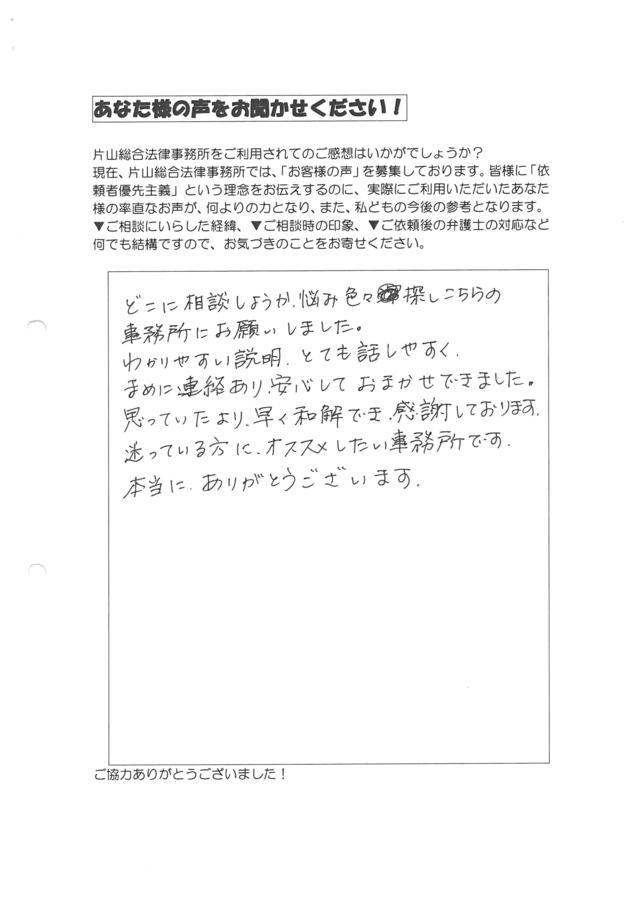 あなた様の声をお聞かせください！
片山総合法律事務所をご利用されてのご感想はいかがでしょうか？
現在、片山総合法律事務所では、「お客様の声」を募集しております。皆様に「依
頼者優先主義」という理念をお伝えするのに、実際にご利用いただいたあなた
様の率直なお声が、何よりの力となり、また、私どもの今後の参考となります。
▼ご相談にいらした経緯、▼ご相談時の印象、▼ご依頼後の弁護士の対応など
何でも結構ですので、お気づきのことをお寄せください。
どこに相談しようか、悩み色々探しこちらの
事務所にお願いしました。
わかりやすい説明、とても話しやすく、
まめに連絡あり、安心しておまかせできました。
思っていたより、早く和解でき、感謝しております。
迷っている方に、オススメしたい事務所です。
本当に、ありがとうございます。
ご協力ありがとうございました！